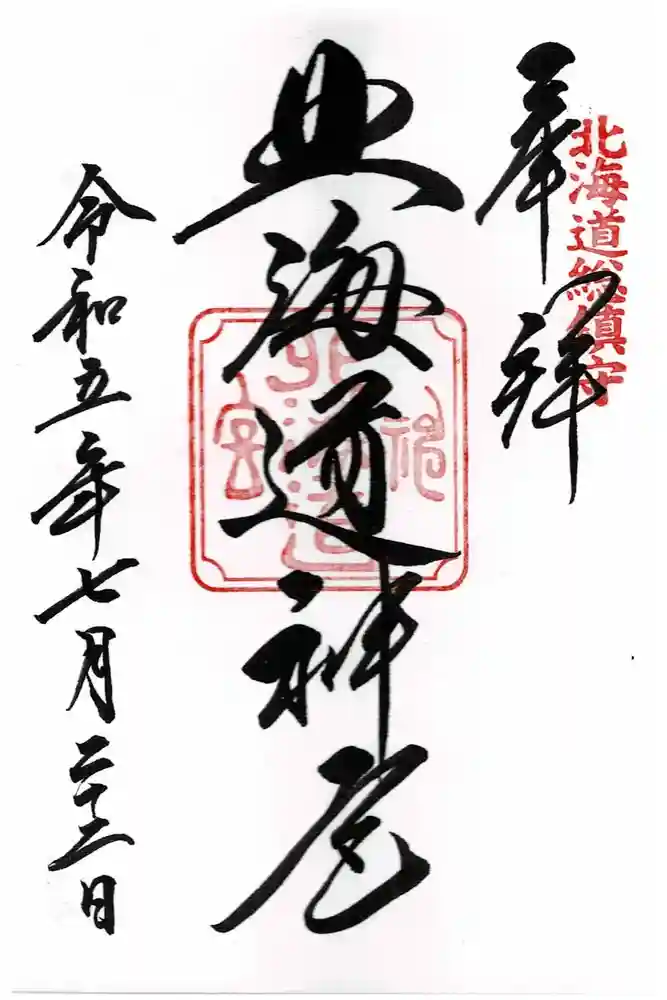 北海道総鎮守
奉拝
北海道神宮
北海道神宮
令和五年七月二十二日